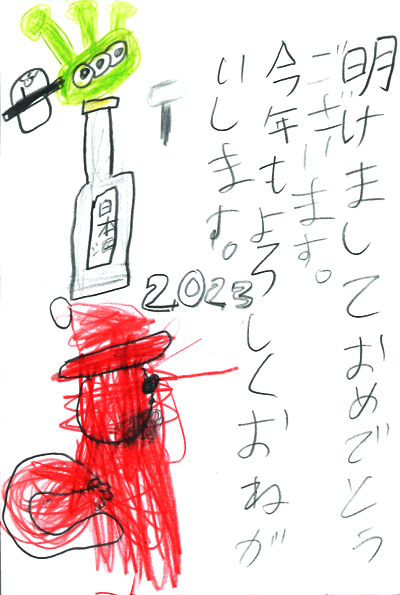 明けましておめでとう
ございます。
今年もよろしくおねが
いします。
日本酒
2023